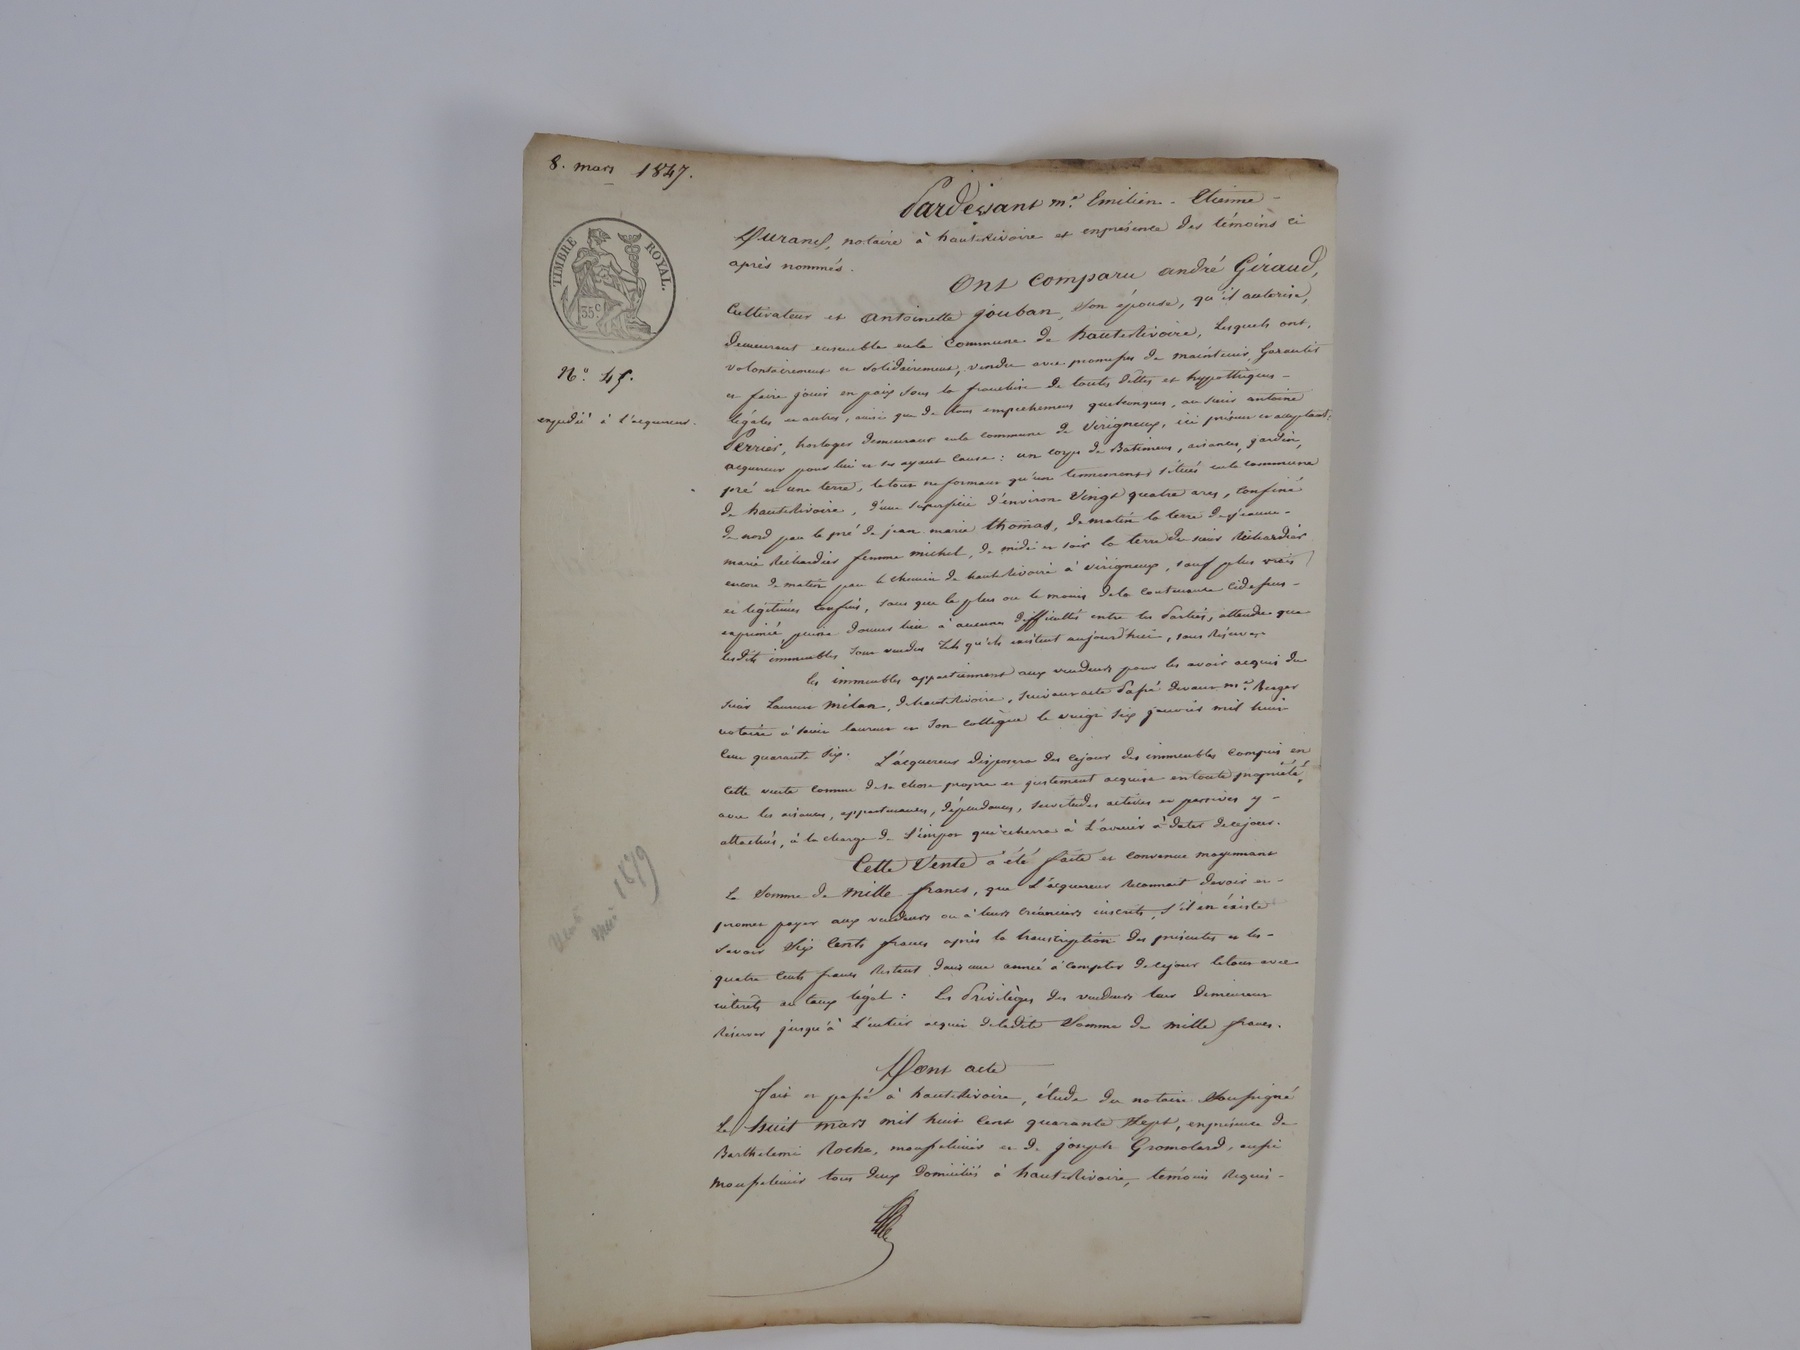 8. mars 1847.
TIMBRE ROYAL.
35 c
N.o 45.
expédié à l'acquereur.
Pardevant m.e Emilien - Etienne -
Durand, notaire à hauterivoire et en présence des témoins ci
après nommés.
Ont comparu andré Giraud,
Cultivateur et Antoinette jouban, son épouse, qu'il autorise,
demeurant ensemble en la Commune de hauterivoire, Lesquels ont,
volontairement et solidairement, vendu avec promesse de maintenir, Garantir
et faire jouir en paix sous la franchise de toutes dettes et hypothèques -
légales et autres, ainsi que de tous empechemens quelconques, au sieur antoine
Perrier, horloger demeurant en la commune de Virigneux, ici présent et acceptant,
acquereur pour lui et ses ayant cause : un corps de Batimens, aisances, jardin,
pré et une terre, le tout ne formant qu'un tennement, situés en la commune
de hauterivoire, d'une superficie d'environ Vingt quatre ares, confiné
de nord par le pré de jean marie thomas, de matin la terre de jeanne -
marie Richardier femme michel, de midi et soir la terre du sieur Richardier
encore de matin par le chemin de hauterivoire à Virigneux, sauf plus vrais
et legitimes confins, sans que le plus ou le moins de la contenance cidessus -
exprimée, puisse donner lieu à aucunes difficultés entre les Parties, attendu que
lesdits immeubles sont vendus tels qu'ils existent aujourd'hui, sans Réserve
les immeubles appartiennent aux vendeurs pour les avoir acquis du
sieur Laurent milan, de hauterivoire, suivant acte passé devant m.e Berger
notaire à saint laurent et son collègue le vingt six janvier mil huit
cent quarante six. L'acquereur disposera dès cejour des immeubles compris en
cette vente comme de sa chose propre et justement acquise en toute propriété,
avec les aisances, appartenances, dépendances, servitudes actives et passives y -
attachés, à la charge de l'impot qu'écherra à L'avenir à dater de cejour.
Cette Vente a été faite et convenue moyennant
la Somme de mille francs, que L'acquereur Reconnait devoir et -
promet payer aux vendeurs ou à leurs créanciers inscrits, s'il en éxiste
savoir Six cents francs après la transcription des présentes et les -
quatre cents francs Restant dans une année à compter de cejour le tout avec
interêts au taux légal : Les Privilèges des vendeurs leur demeurent
Réservés jusqu'à L'entier acquit de ladite Somme de mille francs.
Dont acte
fait et passé à hauterivoire, étude du notaire Soussigné
Le huit mars mil huit cent quarante Sept, en présence de
Barthelemi Rocha, mousselinier et de joseph Gromolard, aussi
mousselinier tous deux domiciliés à hauterivoire, temoins Requis -
1879